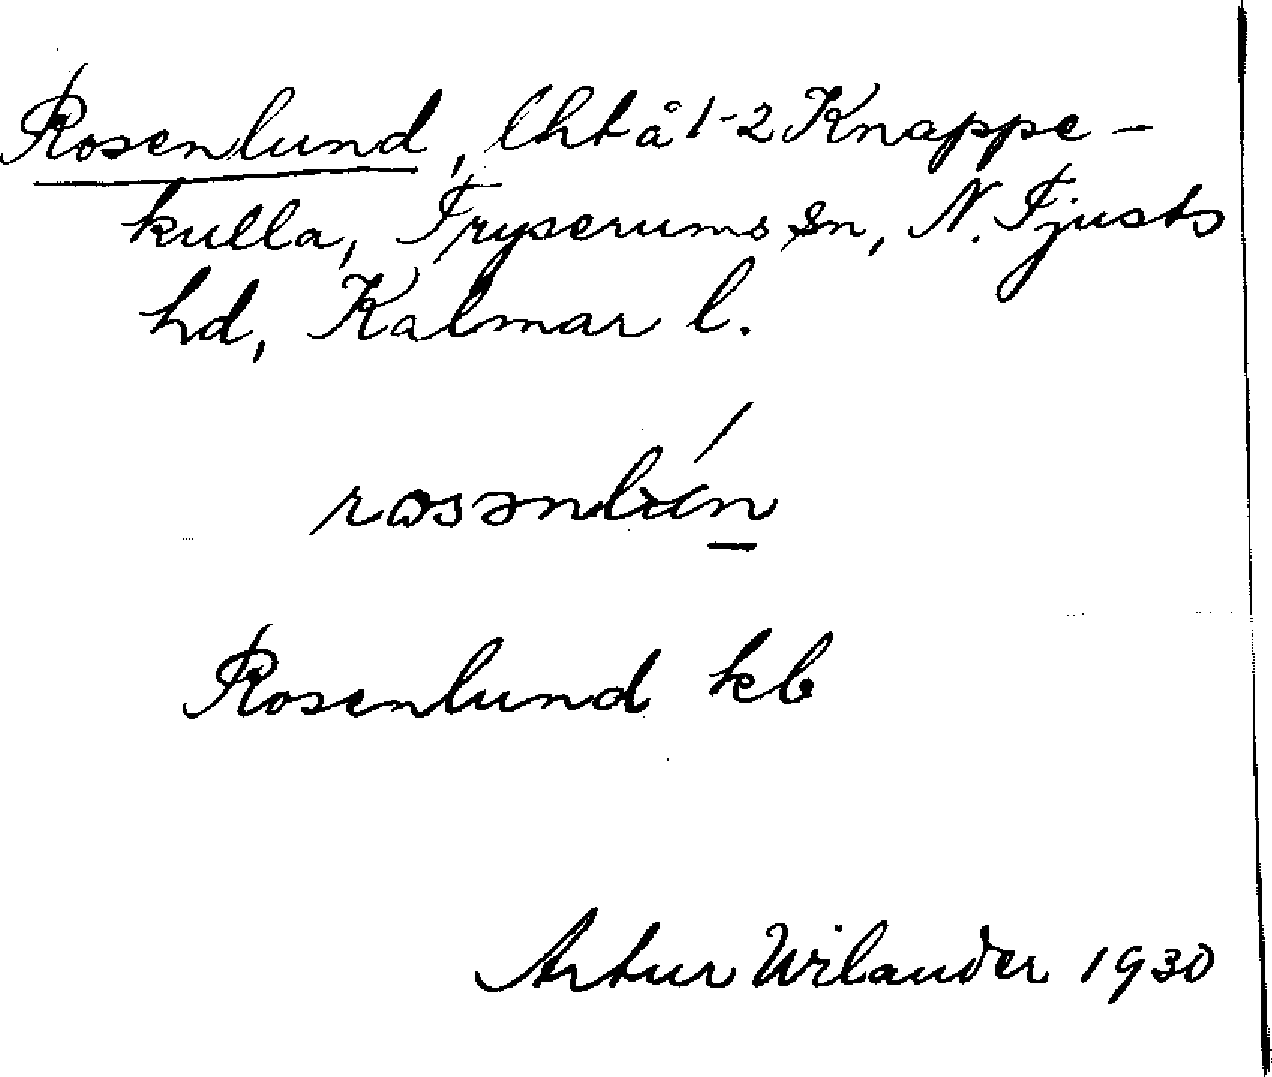 Rosenlund, lht å 1-2 Knappe-
kulla, Tryserums sn, N. Tjusts
hd, Kalmar l.
rosənlún
Rosenlund kb
Artur Wilander 1930